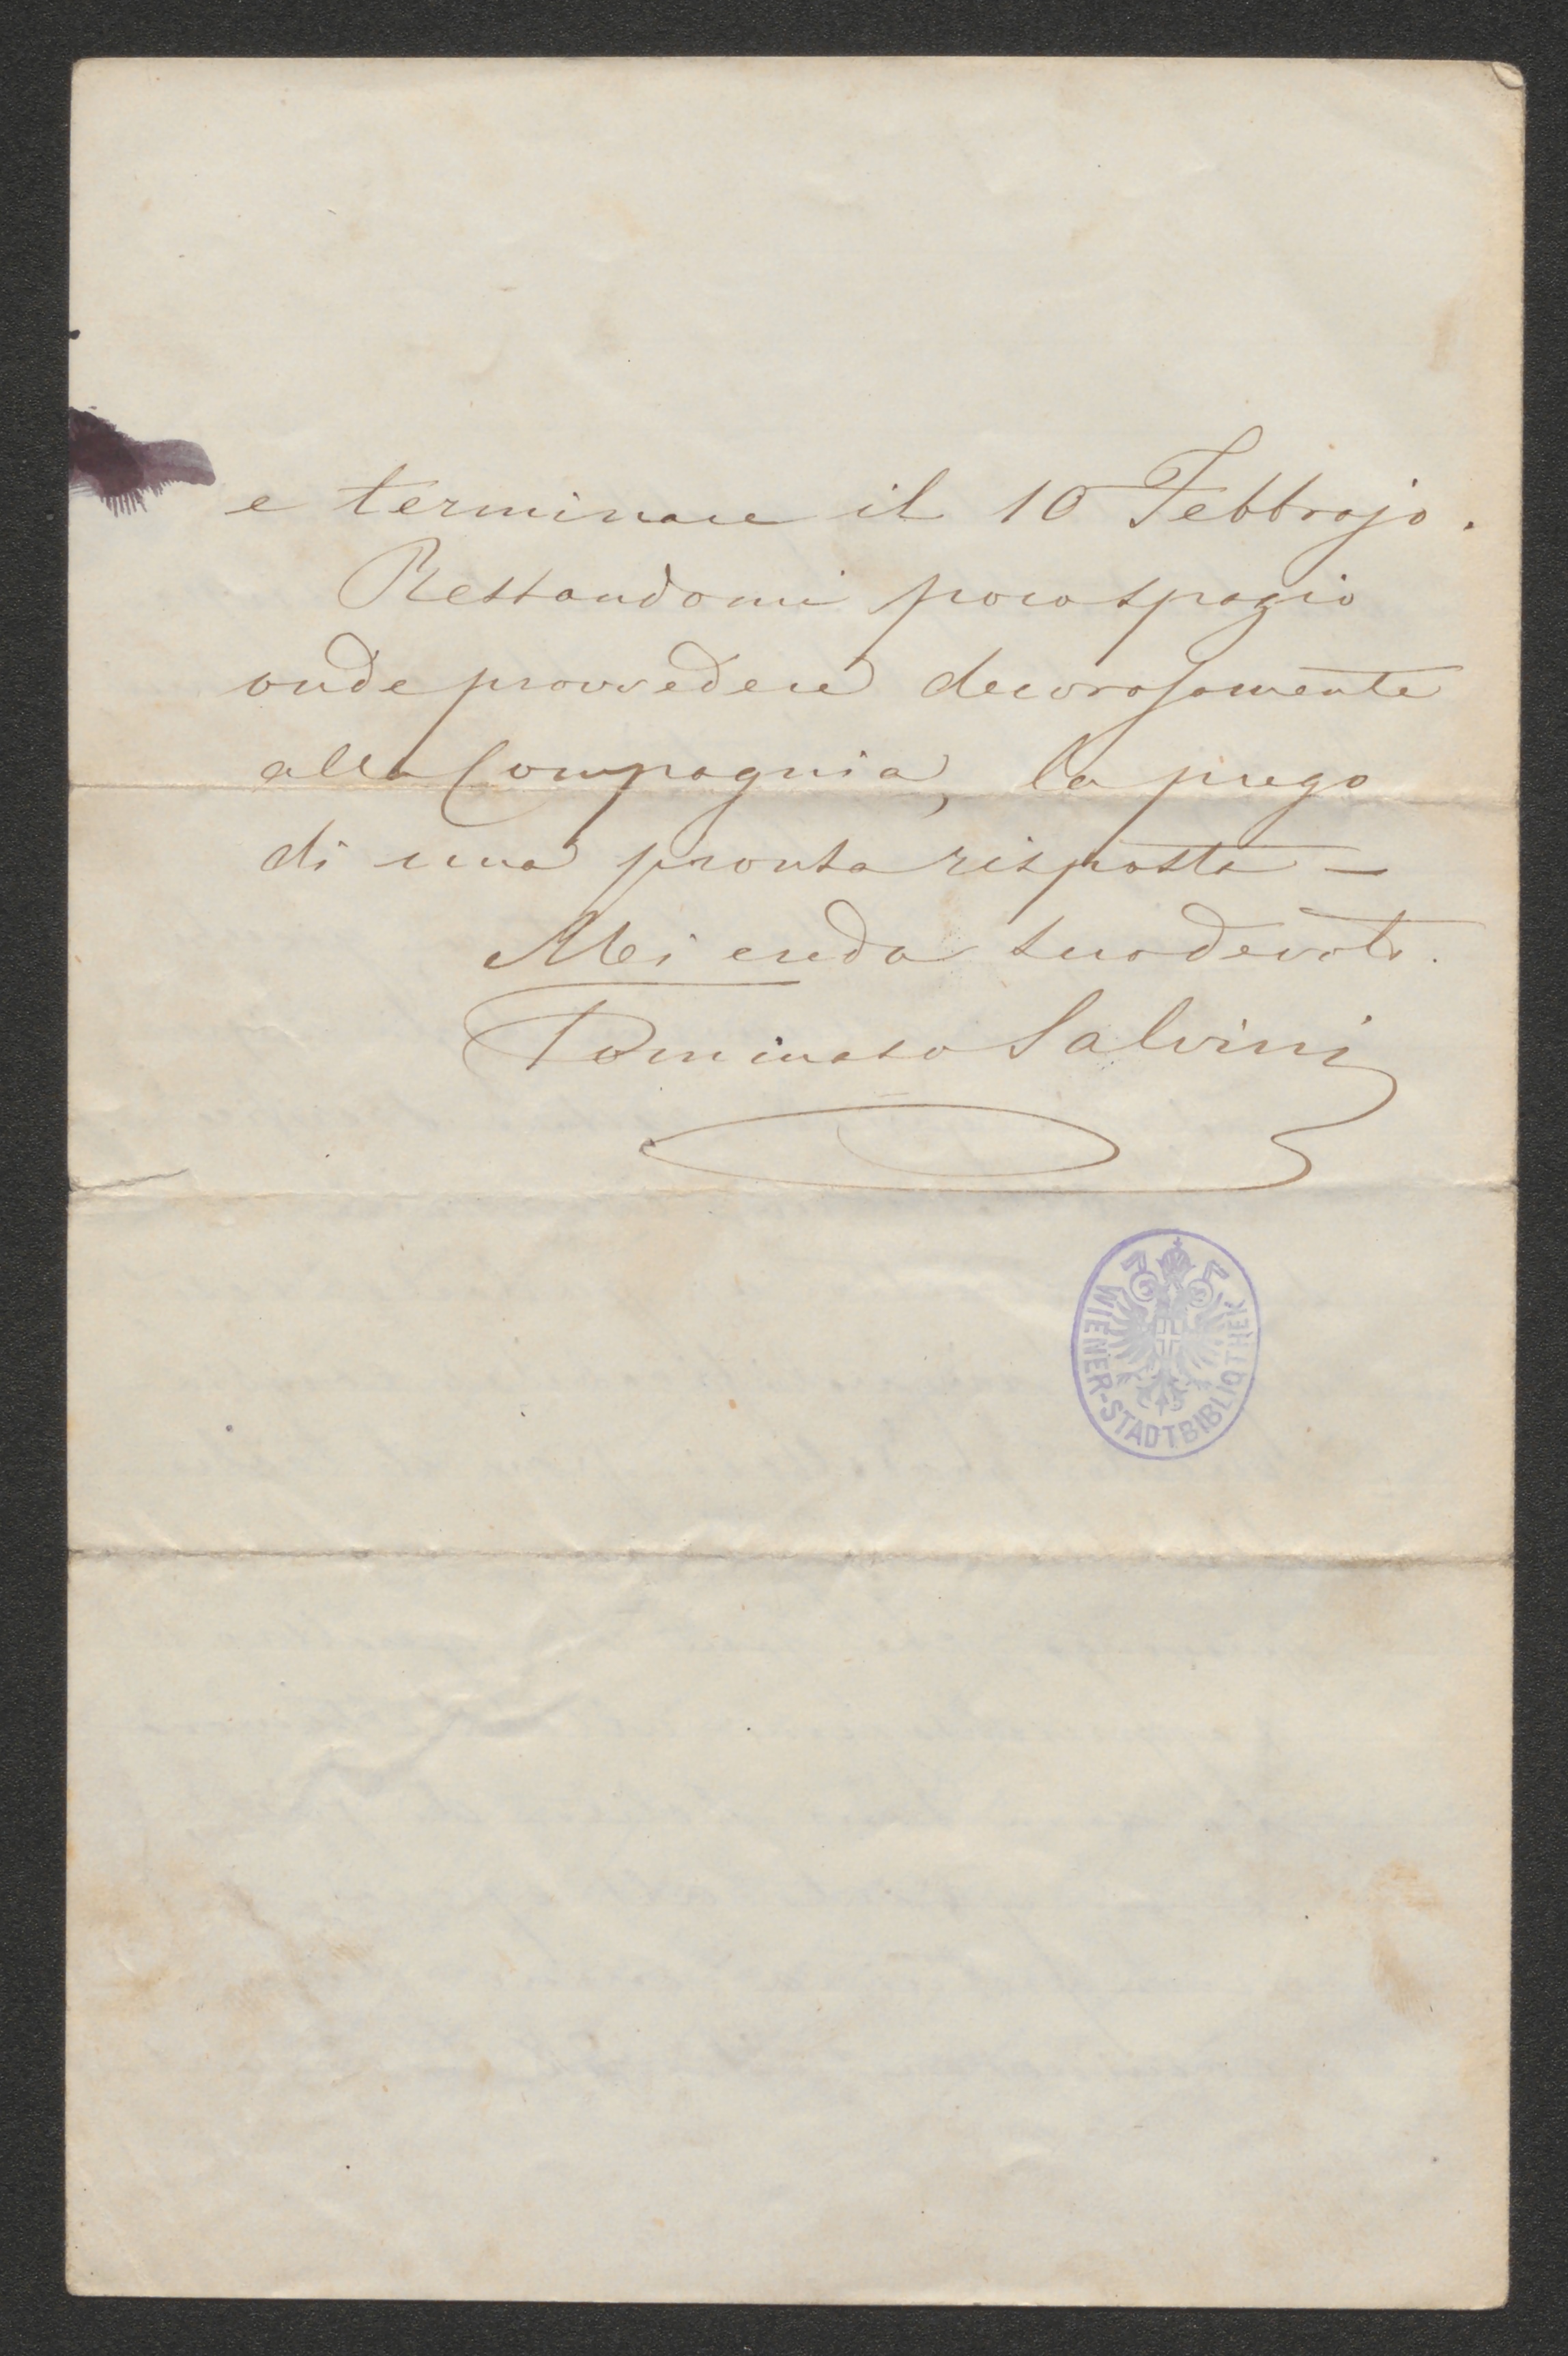 e terminare il 10 Febbrajo.
Restandomi poco spazio
onde provvedere decorosamente
alla Compagnia, la prego
di una pronta risposta —
Mi creda suo devoto.
Tommaso Salvini
WIENER-STADTBIBLIOTHEK